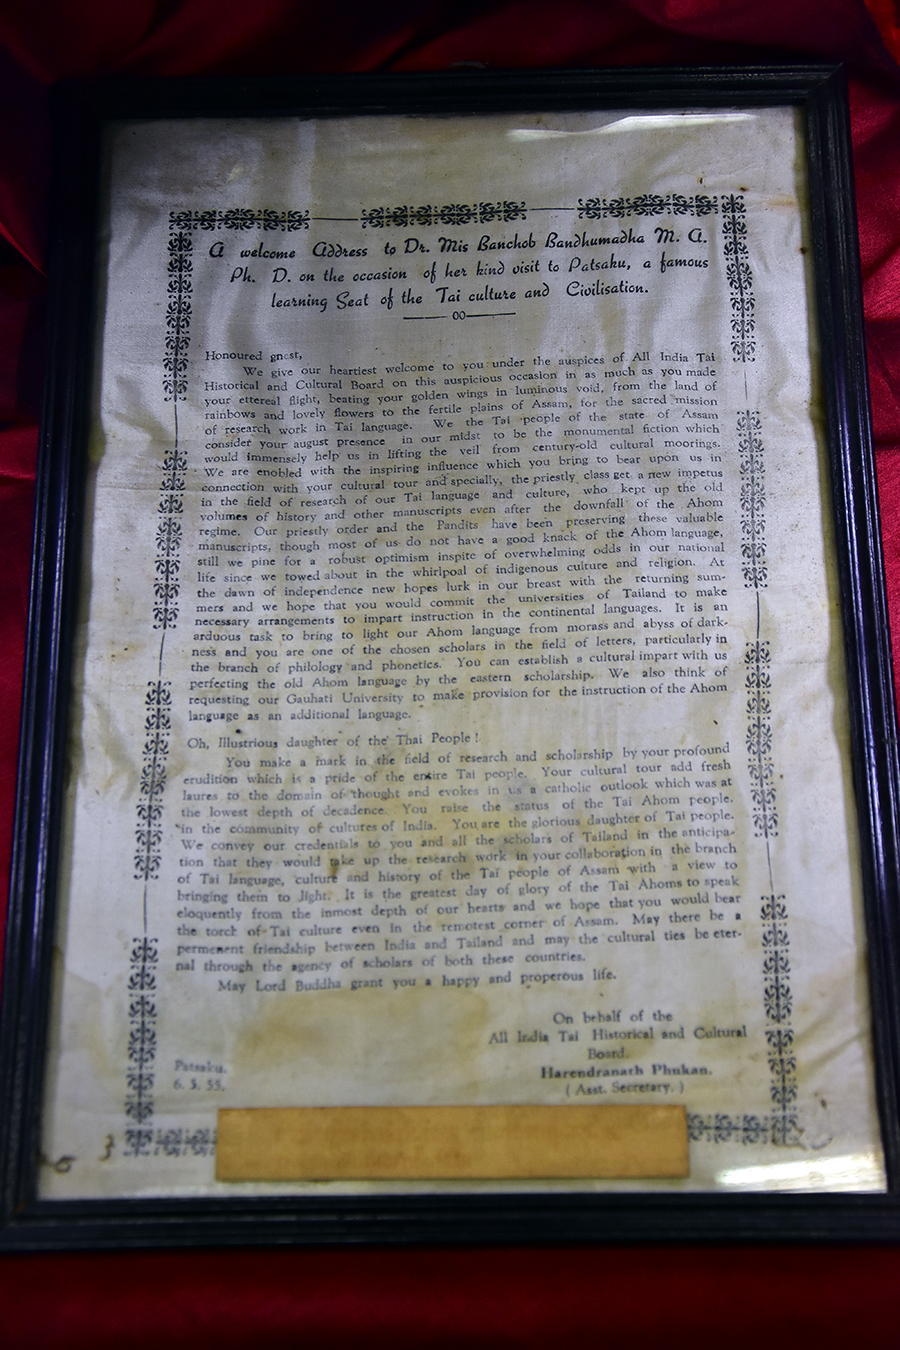 A welcome Address to Dr. Mis Banchob Bandhumadha M. A.
Ph. D. on the occasion of her kind visit to Patsaku, a famous
learning Seat of the Tai culture and Civilisation.
oo
Honoured gnest,
We give our heartiest welcome to you under the auspices of All India Tai
Historical and Cultural Board on this auspicious occasion in as much as you made
your ettereal flight, beating your golden wings in luminous void, from the land of
rainbows and lovely flowers to the fertile plains of Assam, for the sacred mission
of research work in Tai language. We the Tai people of the state of Assam
consider your august presence in our midst to be the monumental fiction which
would immensely help us in lifting the veil from century-old cultural moorings.
We are enobled with the inspiring influence which you bring to bear upon us in
connection with your cultural tour and specially, the priestly class get a new impetus
in the field of research of our Tai language and culture, who kept up the old
volumes of history and other manuscripts even after the downfall of the Ahom
regime. Our priestly order and the Pandits have been preserving these valuable
manuscripts, though most of us do not have a good knack of the Ahom language,
still we pine for a robust optimism inspite of overwhelming odds in our national
life since we towed about in the whirlpoal of indigenous culture and religion. At
the dawn of independence new hopes lurk in our breast with the returning sum-
mers and we hope that you would commit the universities of Tailand to make
necessary arrangements to impart instruction in the continental languages. It is an
arduous task to bring to light our Ahom language from morass and abyss of dark-
ness and you are one of the chosen scholars in the field of letters, particularly in
the branch of philology and phonetics. You can establish a cultural impart with us
perfecting the old Ahom language by the eastern scholarship. We also think of
requesting our Gauhati University to make provision for the instruction of the Ahom
language as an additional language.
Oh, Illustrious daughter of the Thai People !
You make a mark in the field of research and scholarship by your profound
erudition which is a pride of the entire Tai people. Your cultural tour add fresh
laures to the domain of thought and evokes in us a catholic outlook which was at
the lowest depth of decadence. You raise the status of the Tai Ahom people.
in the community of cultures of India. You are the glorious daughter of Tai people.
We convey our credentials to you and all the scholars of Tailand in the anticipa-
tion that they would take up the research work in your collaboration in the branch
of Tai language, culture and history of the Tai people of Assam with a view to
bringing them to light. It is the greatest day of glory of the Tai Ahoms to speak
eloquently from the inmost depth of our hearts and we hope that you would bear
the torch of Tai culture even in the remotest corner of Assam. May there be a
permenent friendship between India and Tailand and may the cultural ties be eter-
nal through the agency of scholars of both these countries.
May Lord Buddha grant you a happy and properous life.
On behalf of the
All India Tai Historical and Cultural
Board.
Harendranath Phukan.
( Asst. Secretary. )
Patsaku.
6. 5. 55.